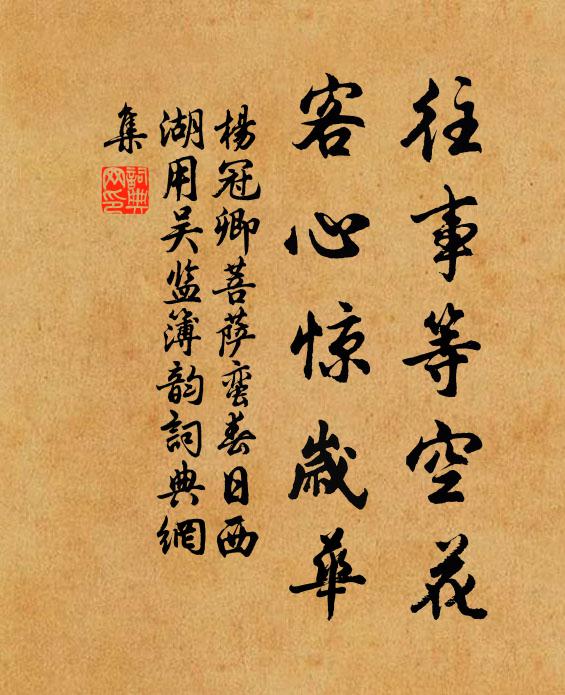 往事等空花
客心惊岁华
楊冠卿菩萨蛮春日西
湖用吴监簿韵詞典網
集
詞典
网印